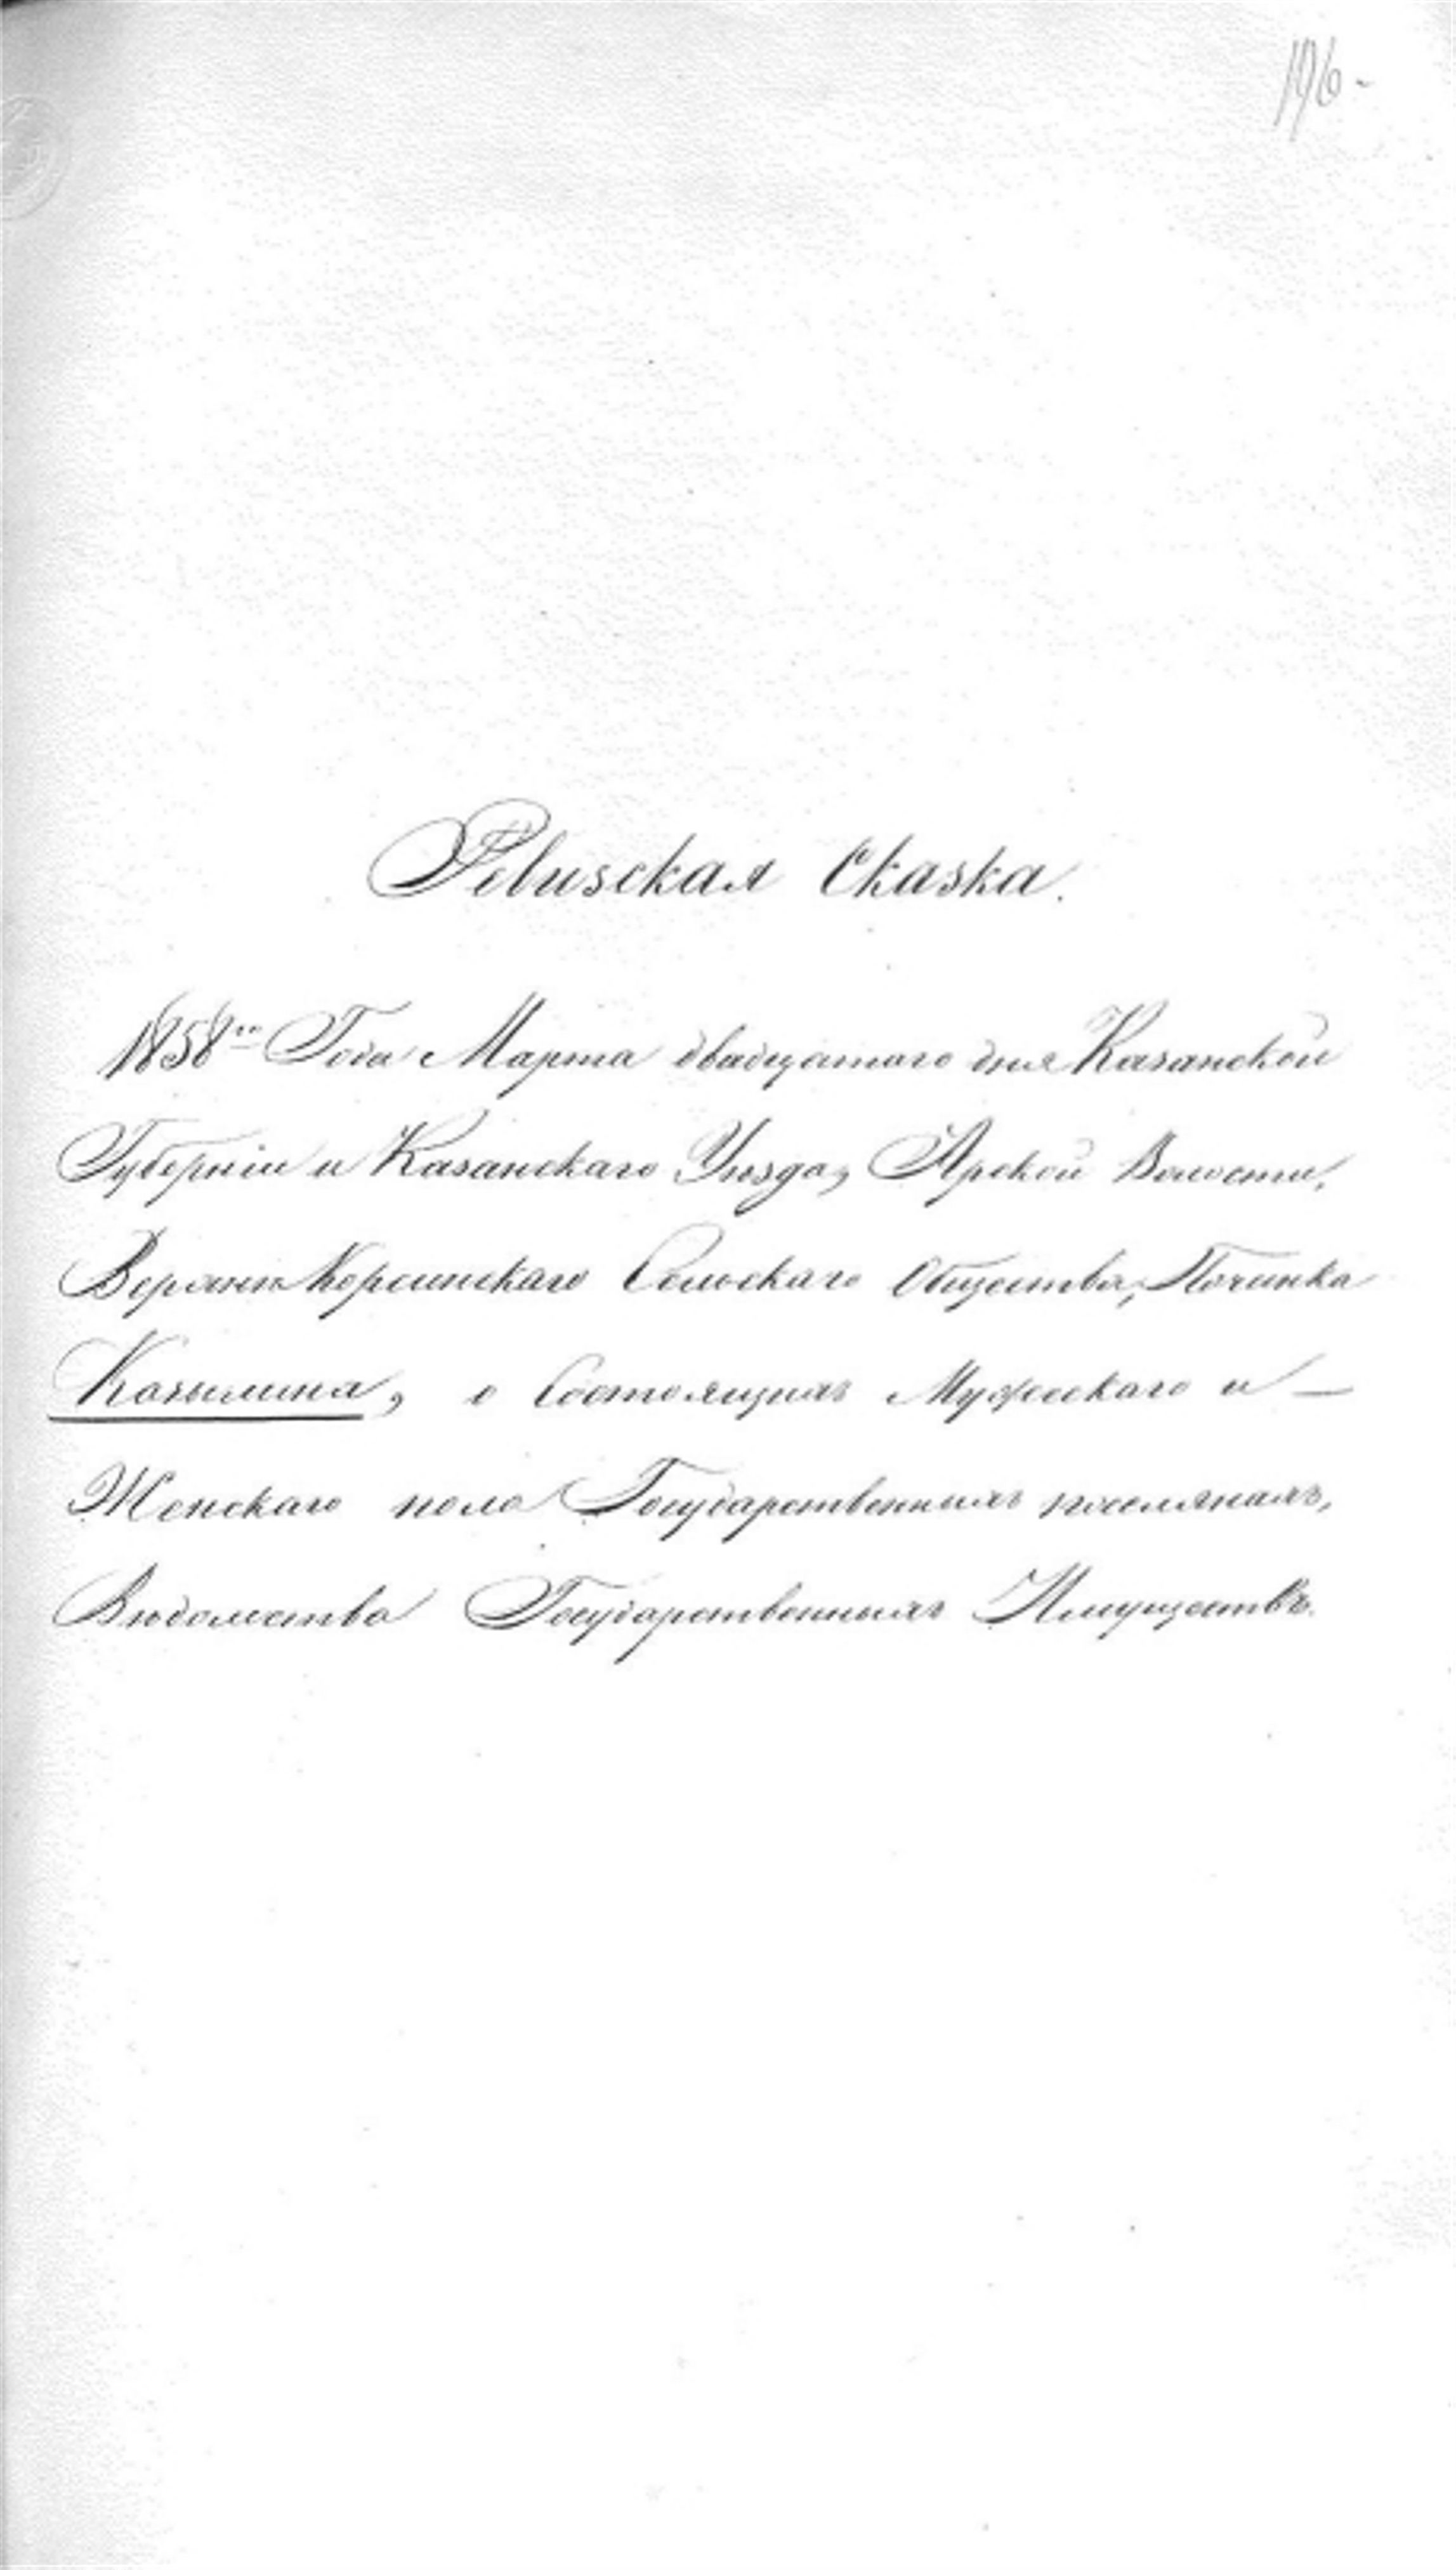 196
Ревизская Сказка.
1858го Года Марта двадцатаго дня Казанской
Губерніи и Казанскаго Уѣзда, Арской Волости,
Верхнекорсинскаго Сельскаго Общества, Починка
о Состоящихъ Мужескаго и —
Женскаго пола Государственныхъ поселянахъ,
Вѣдомства Государственныхъ Имуществъ.